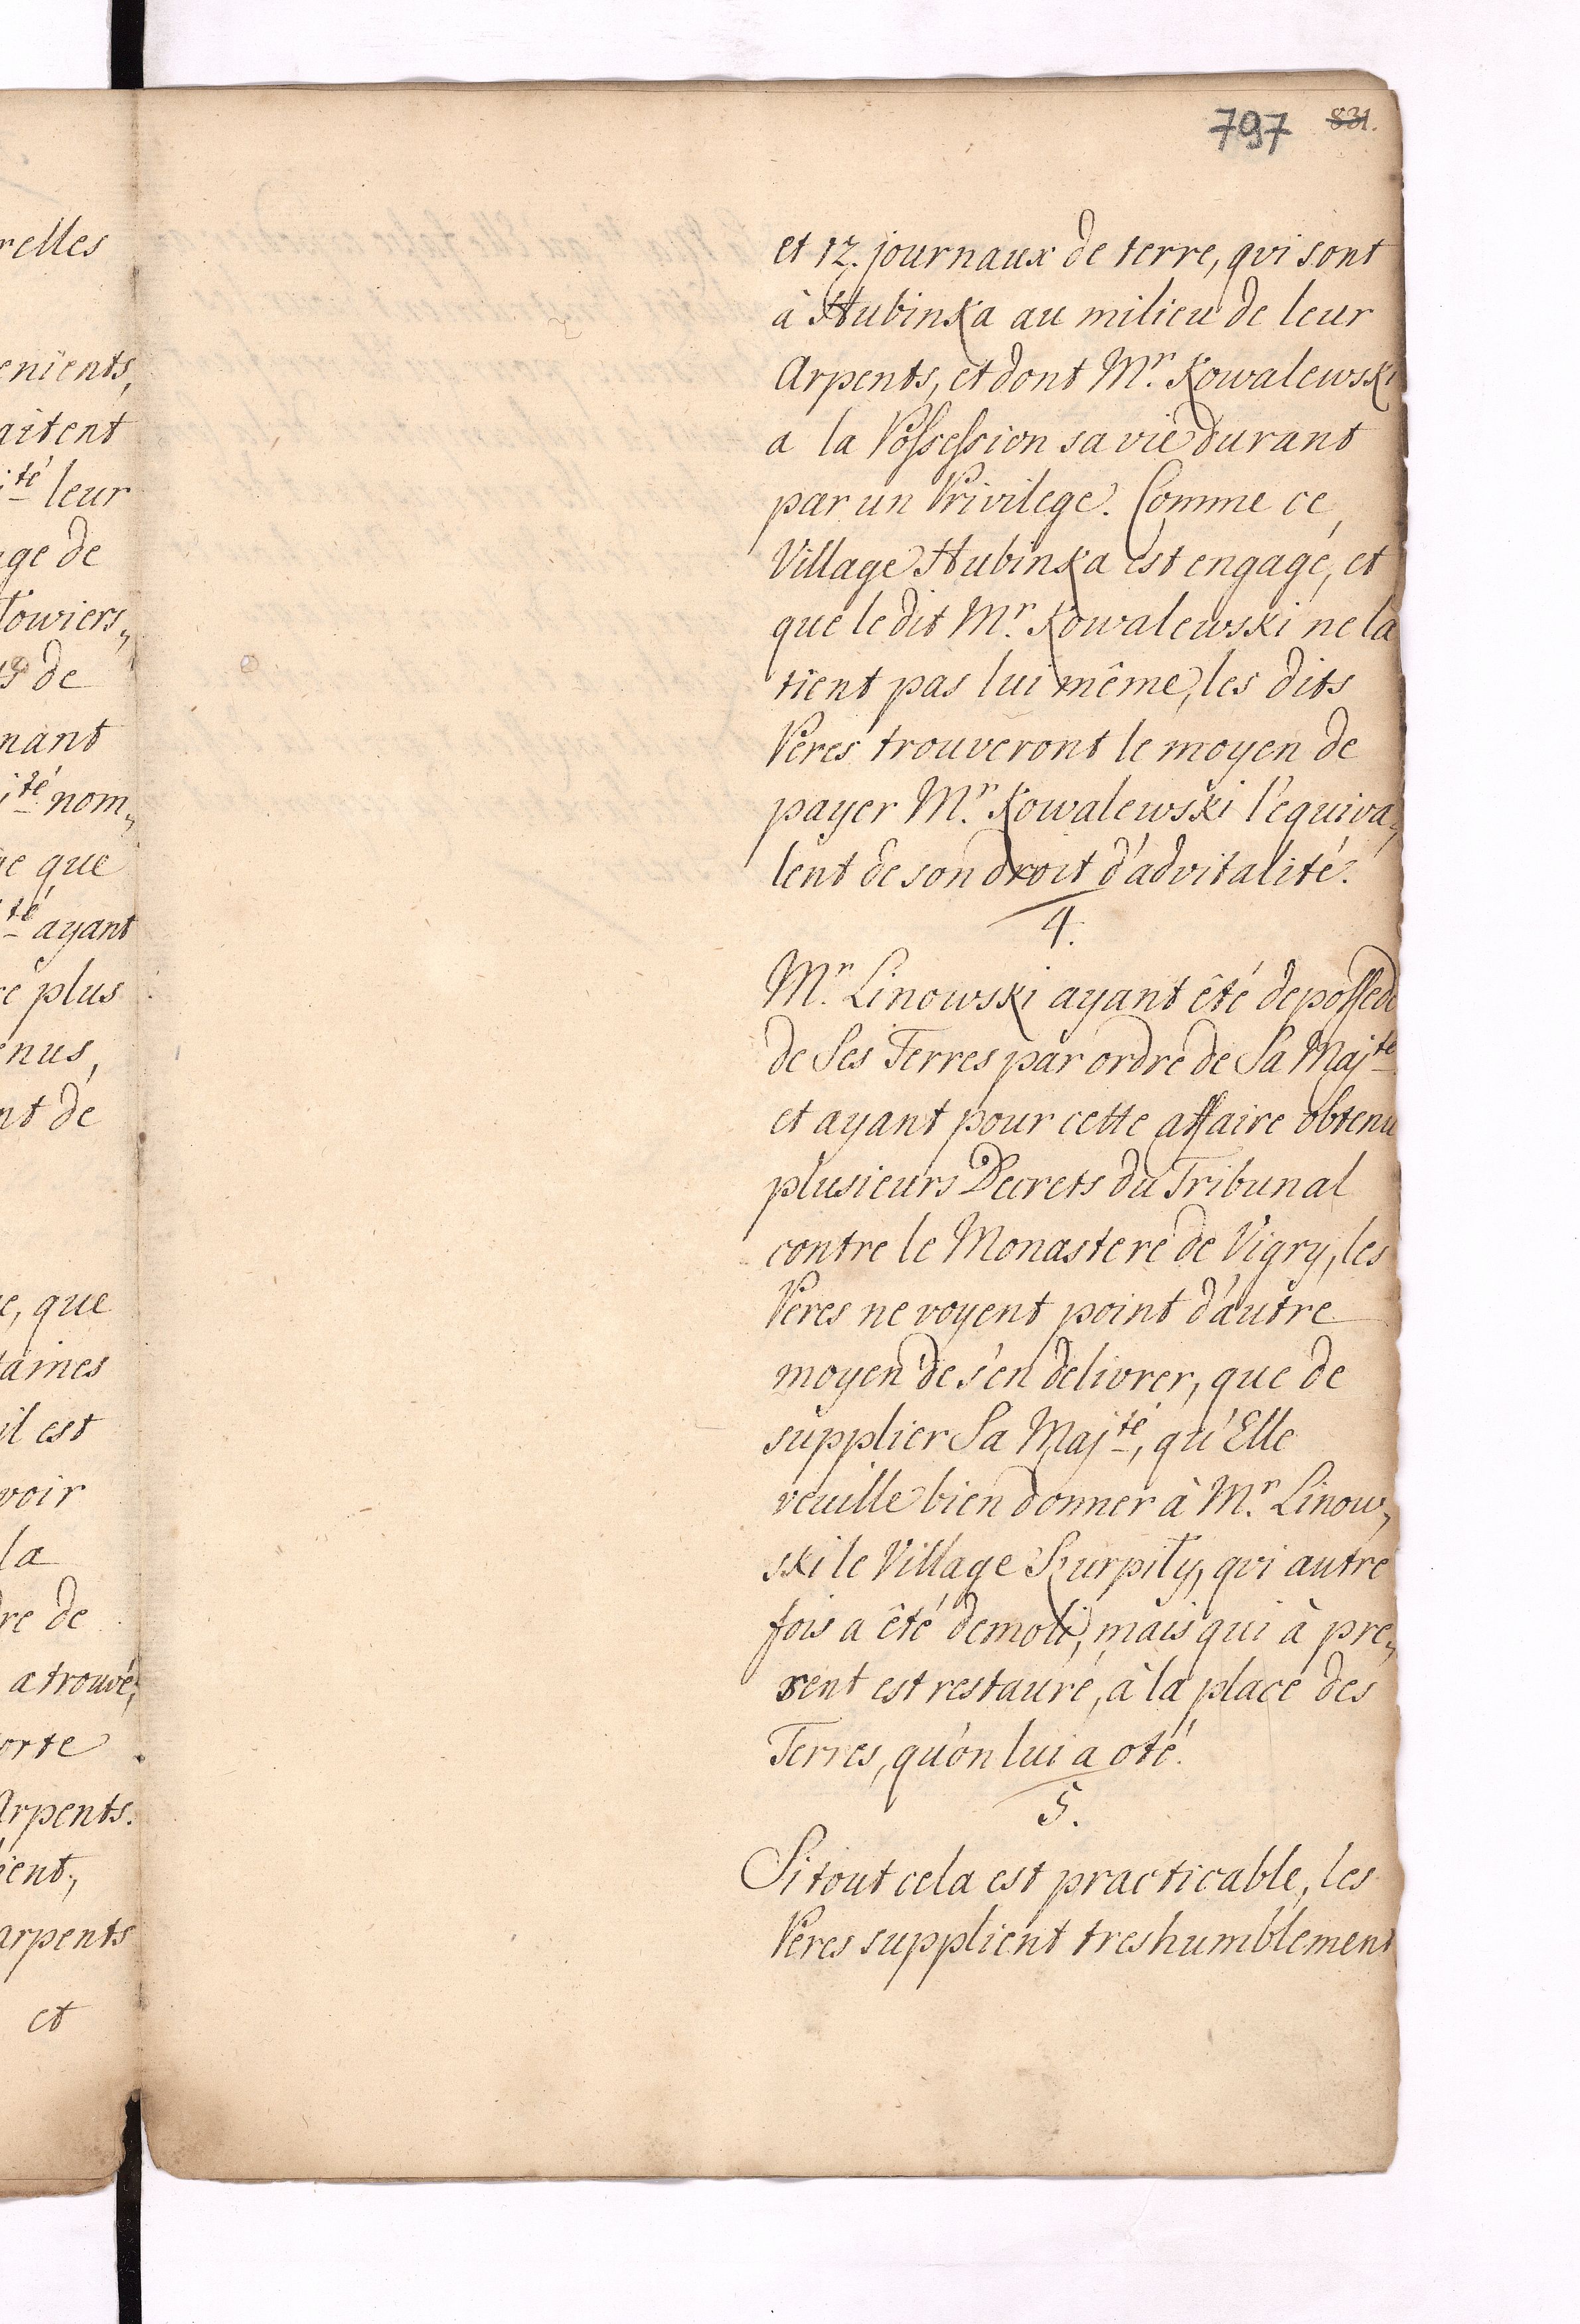 relles
enients,
aitent
ité leur
ge de
Towiers,,
s de
nant
ité nom,,
ge que
té ayant
re plus
enus,
nt de
e, que
taines
il est
voir
la
re de
a trouvé,
orte
Arpents.
ient,
arpents
et
797 831.
et 12. journaux de terre, qui sont
à Hubinka au milieu de leur
Arpents, et dont Mr. Kowalewski
a la Possession sa vie durant
par un Privilege. Comme ce
Village Hubinka est engagé, et
que le dit Mr. Kowalewski ne la
tient pas lui même, les dits
Peres trouveront le moyen de
payer Mr. Kowalewski l'equiva,,
lent de son droit d'advitalité.
4.
Mr. Linowski ayant été depossedé
de Ses Terres par ordre de Sa Majté
et ayant pour cette affaire obtenu
plusieurs Decrets du Tribunal
contre le Monastere de Vigry, les
Peres ne voyent point d'autre
moyen de s'en delivrer, que de
supplier Sa Majté, qu'Elle
veuille bien donner à Mr. Linow,,
ski le Village Szurpity, qui autre
fois a été demoli, mais qui à pre,,
sent est restauré, à la place des
Terres, qu'on lui a oté.
5.
Si tout cela est practicable, les
Peres supplient treshumblement